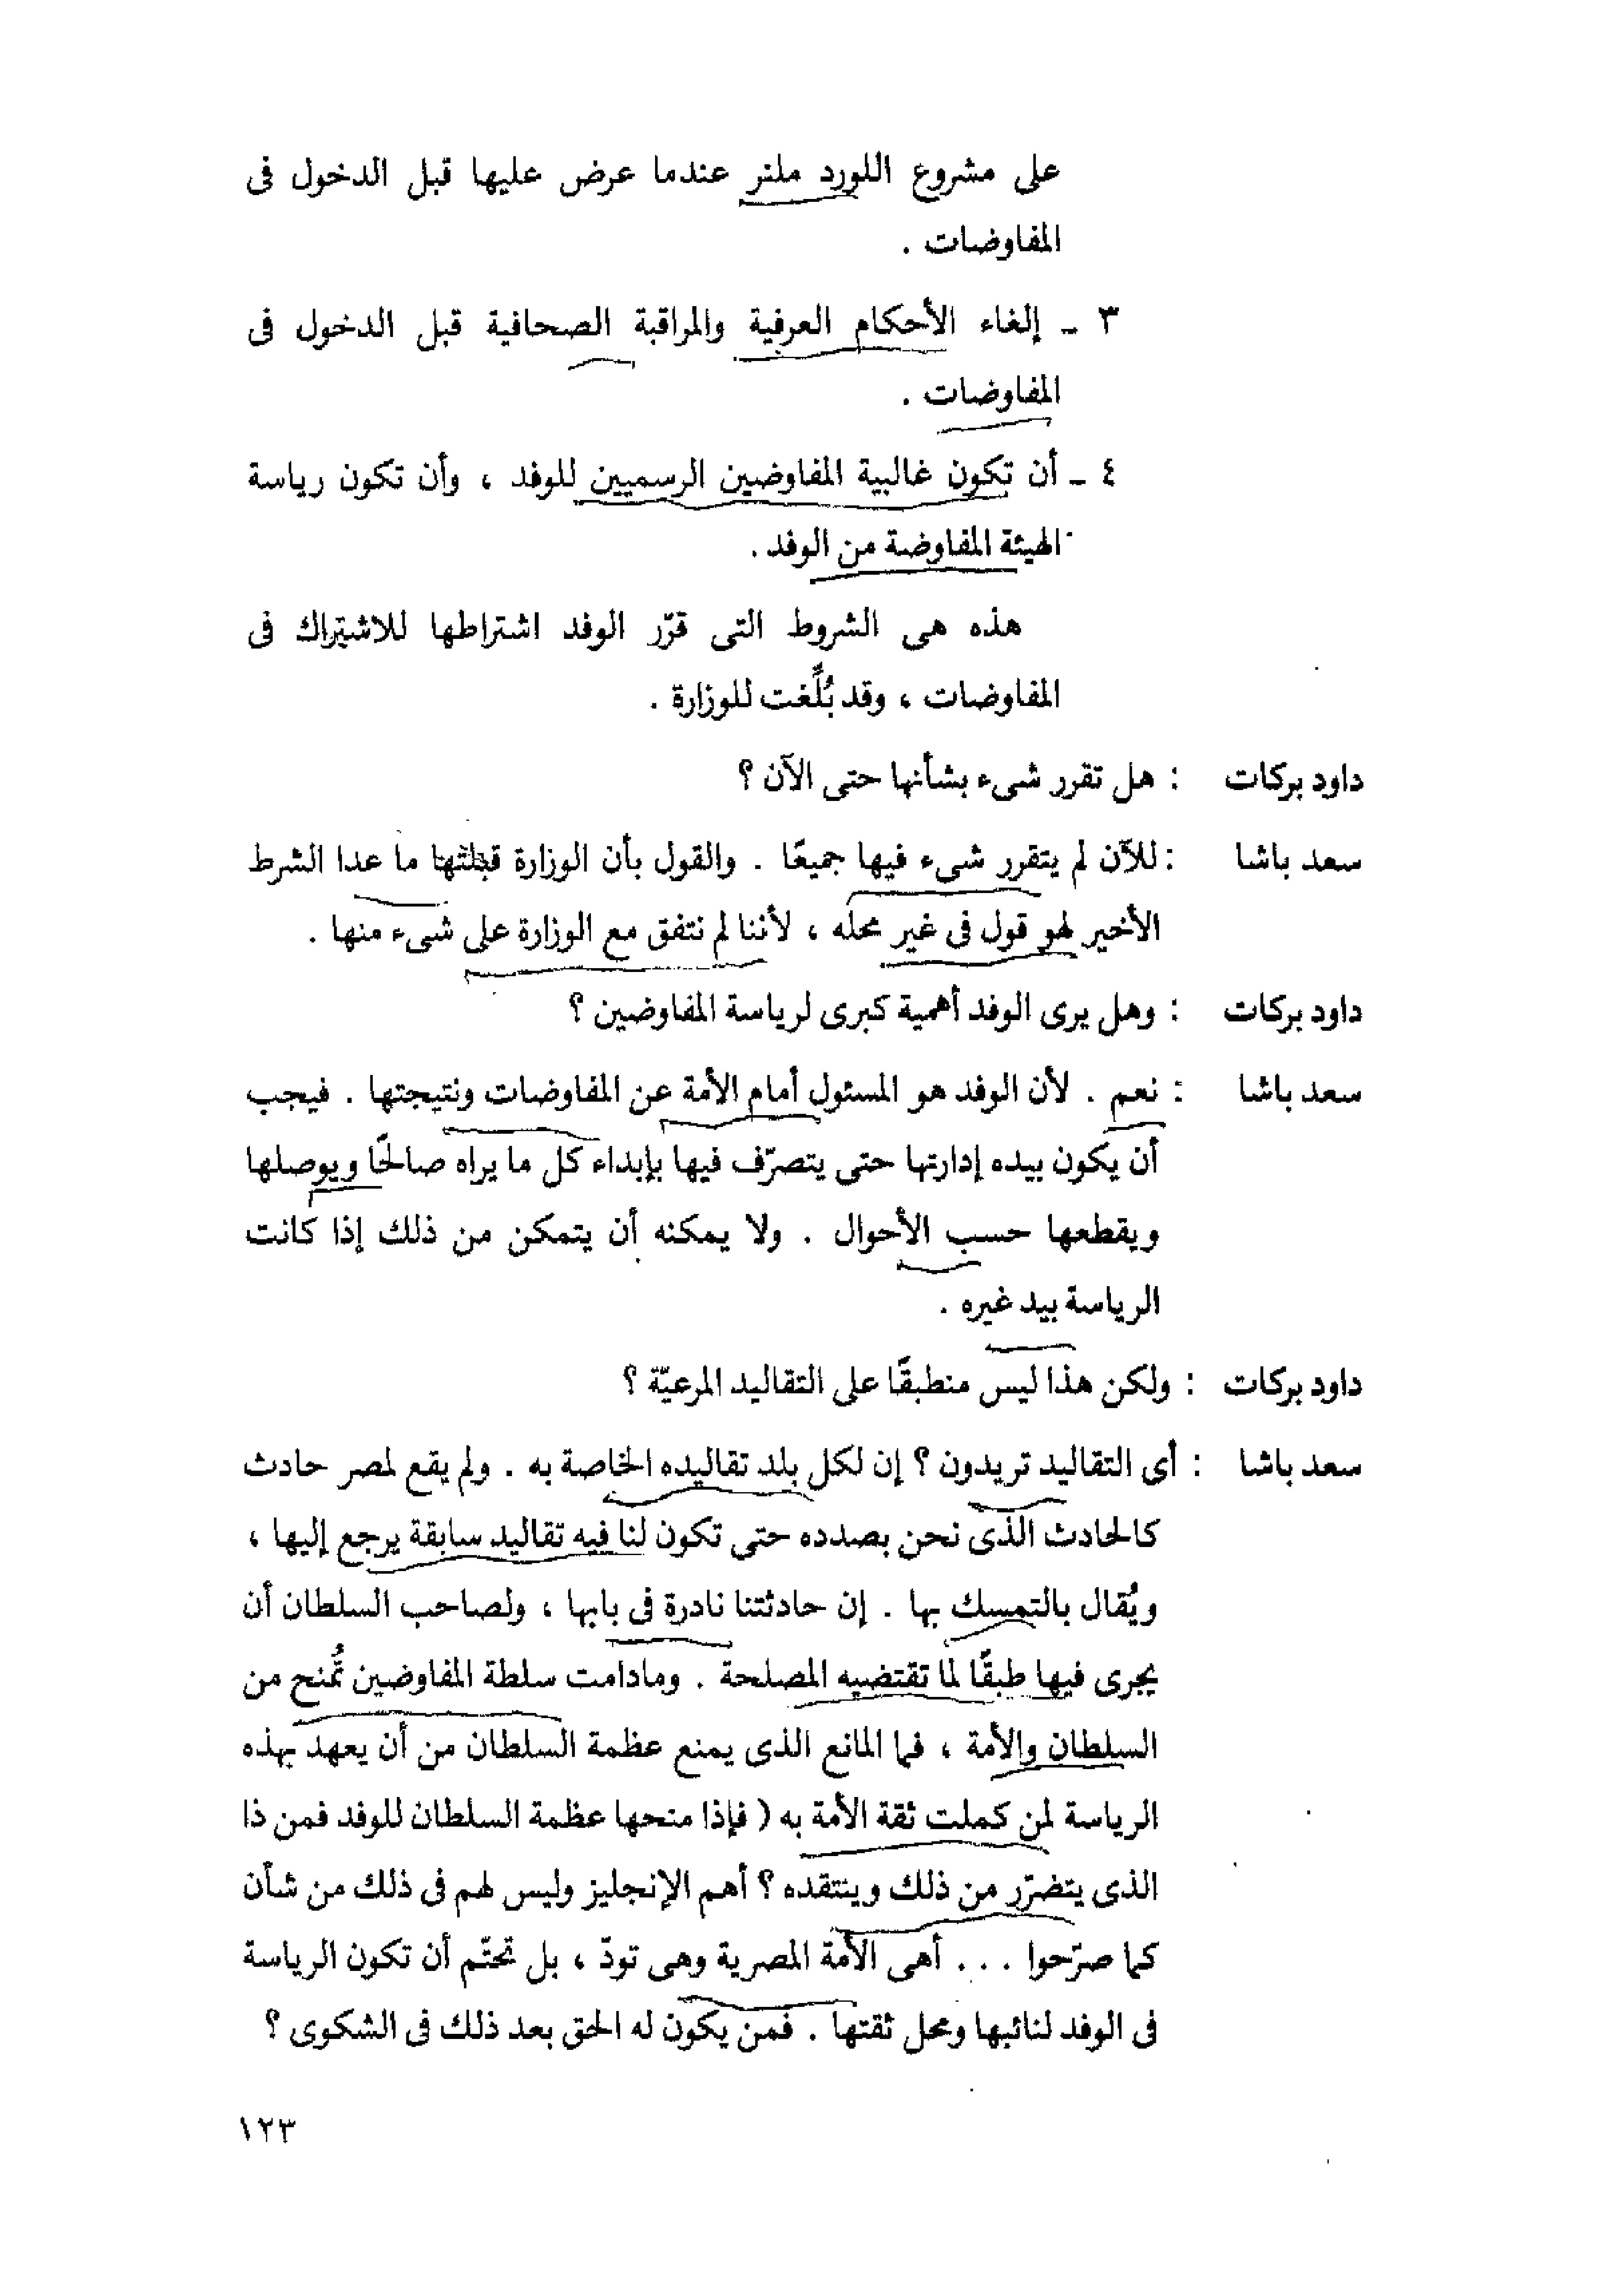 على مشروع اللورد ملنر عندما عرض عليها قبل الدخول فى
المفاوضات .
٣ - إلغاء الأحكام العرفية والمراقبة الصحافية قبل الدخول فى
المفاوضات .
٤ - أن تكون غالبية المفاوضين الرسميين للوفد ، وأن تكون رياسة
الهيئة المفاوضة من الوفد .
هذه هى الشروط التى قرّر الوفد اشتراطها للاشتراك فى
المفاوضات ، وقد بُلِّغت للوزارة .
داود بركات : هل تقرر شىء بشأنها حتى الآن ؟
سعد باشا : للآن لم يتقرر شىء فيها جميعًا . والقول بأن الوزارة قبلتها ما عدا الشرط
الأخير لهو قول فى غير محله ، لأننا لم نتفق مع الوزارة على شىء منها .
داود بركات : وهل يرى الوفد أهمية كبرى لرياسة المفاوضين ؟
سعد باشا : نعم . لأن الوفد هو المسئول أمام الأمة عن المفاوضات ونتيجتها . فيجب
أن يكون بيده إدارتها حتى يتصرّف فيها بإبداء كل ما يراه صالحًا ويوصلها
ويقطعها حسب الأحوال . ولا يمكنه أن يتمكن من ذلك إذا كانت
الرياسة بيد غيره .
داود بركات : ولكن هذا ليس منطبقًا على التقاليد المرعيّة ؟
سعد باشا : أى التقاليد تريدون ؟ إن لكل بلد تقاليده الخاصة به . ولم يقع لمصر حادث
كالحادث الذى نحن بصدده حتى تكون لنا فيه تقاليد سابقة يرجع إليها ،
ويُقال بالتمسك بها . إن حادثتنا نادرة فى بابها ، ولصاحب السلطان أن
يجرى فيها طبقًا لما تقتضيه المصلحة . ومادامت سلطة المفاوضين تُمنح من
السلطان والأمة ، فما المانع الذى يمنع عظمة السلطان من أن يعهد بهذه
الرياسة لمن كملت ثقة الأمة به ( فإذا منحها عظمة السلطان للوفد فمن ذا
الذى يتضرّر من ذلك وينتقده ؟ أهم الإنجليز وليس لهم فى ذلك من شأن
كما صرّحوا . . . أهى الأمة المصرية وهى تودّ ، بل تحتّم أن تكون الرياسة
فى الوفد لنائبها ومحل ثقتها . فمن يكون له الحق بعد ذلك فى الشكوى ؟
١٢٣